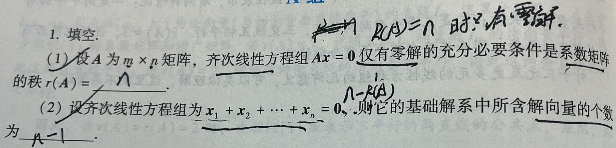 R(A)=n 时只有零解.
1. 填空.
(1) 设A为m×n矩阵,齐次线性方程组Ax=0仅有零解的充分必要条件是系数矩阵
的秩r(A)= n .
n-R(A)
(2) 设齐次线性方程组为x₁+x₂+⋯+xₙ=0,则它的基础解系中所含解向量的个数
为 n-1 .